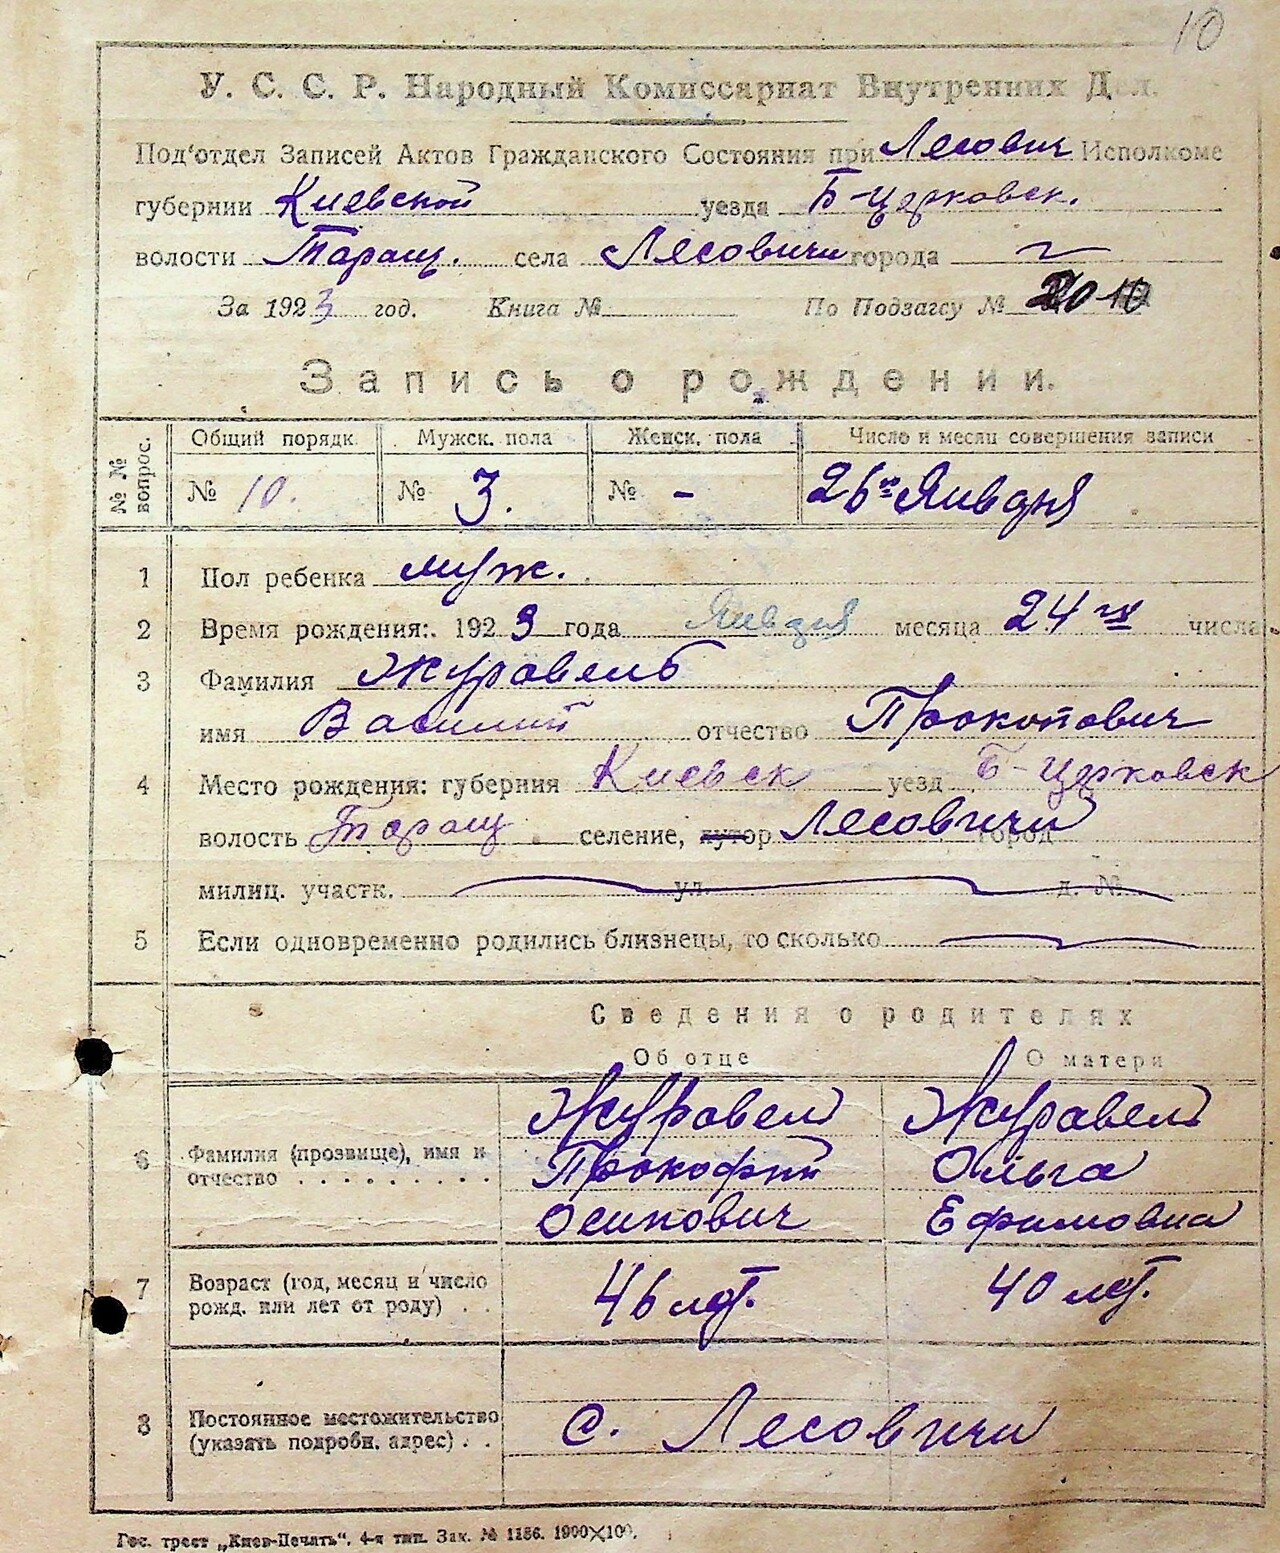 10
У. С. С. Р. Народный Комиссариат Внутренних Дел.
Под'отдел Записей Актов Гражданского Состояния при Лесович Исполкоме
губернии Киевской уезда Б-Церковск.
волости Таращ. села Лесовичи города
За 1923 год. Книга № По Подзагсу № 10
Запись о рождении.
№№ вопрос. Общий порядк. Мужск. пола Женск. пола Число и месяц совершения записи
№ 10. № 3. № - 26го Января
1 Пол ребенка муж.
2 Время рождения: 1923 года Января месяца 24го числа
3 Фамилия Журавель
имя Василий отчество Прокопович
4 Место рождения: губерния Киевск уезд Б-Церковск
волость Таращ селение, хутор Лесовичи город
милиц. участк. ул. д. №
5 Если одновременно родились близнецы, то сколько
Сведения о родителях
Об отце О матери
Журавел Журавел
6 Фамилия (прозвище), имя и Прокофий Ольга
отчество . . . . . . . . . Осипович Ефимовна
7 Возраст (год, месяц и число 46 лет. 40 лет.
рожд. или лет от роду) . .
8 Постоянное местожительство с. Лесовичи
(указать подробн. адрес) . .
Гос. трест „Киев-Печать“. 4-я тип. Зак. № 1156. 1900×100.